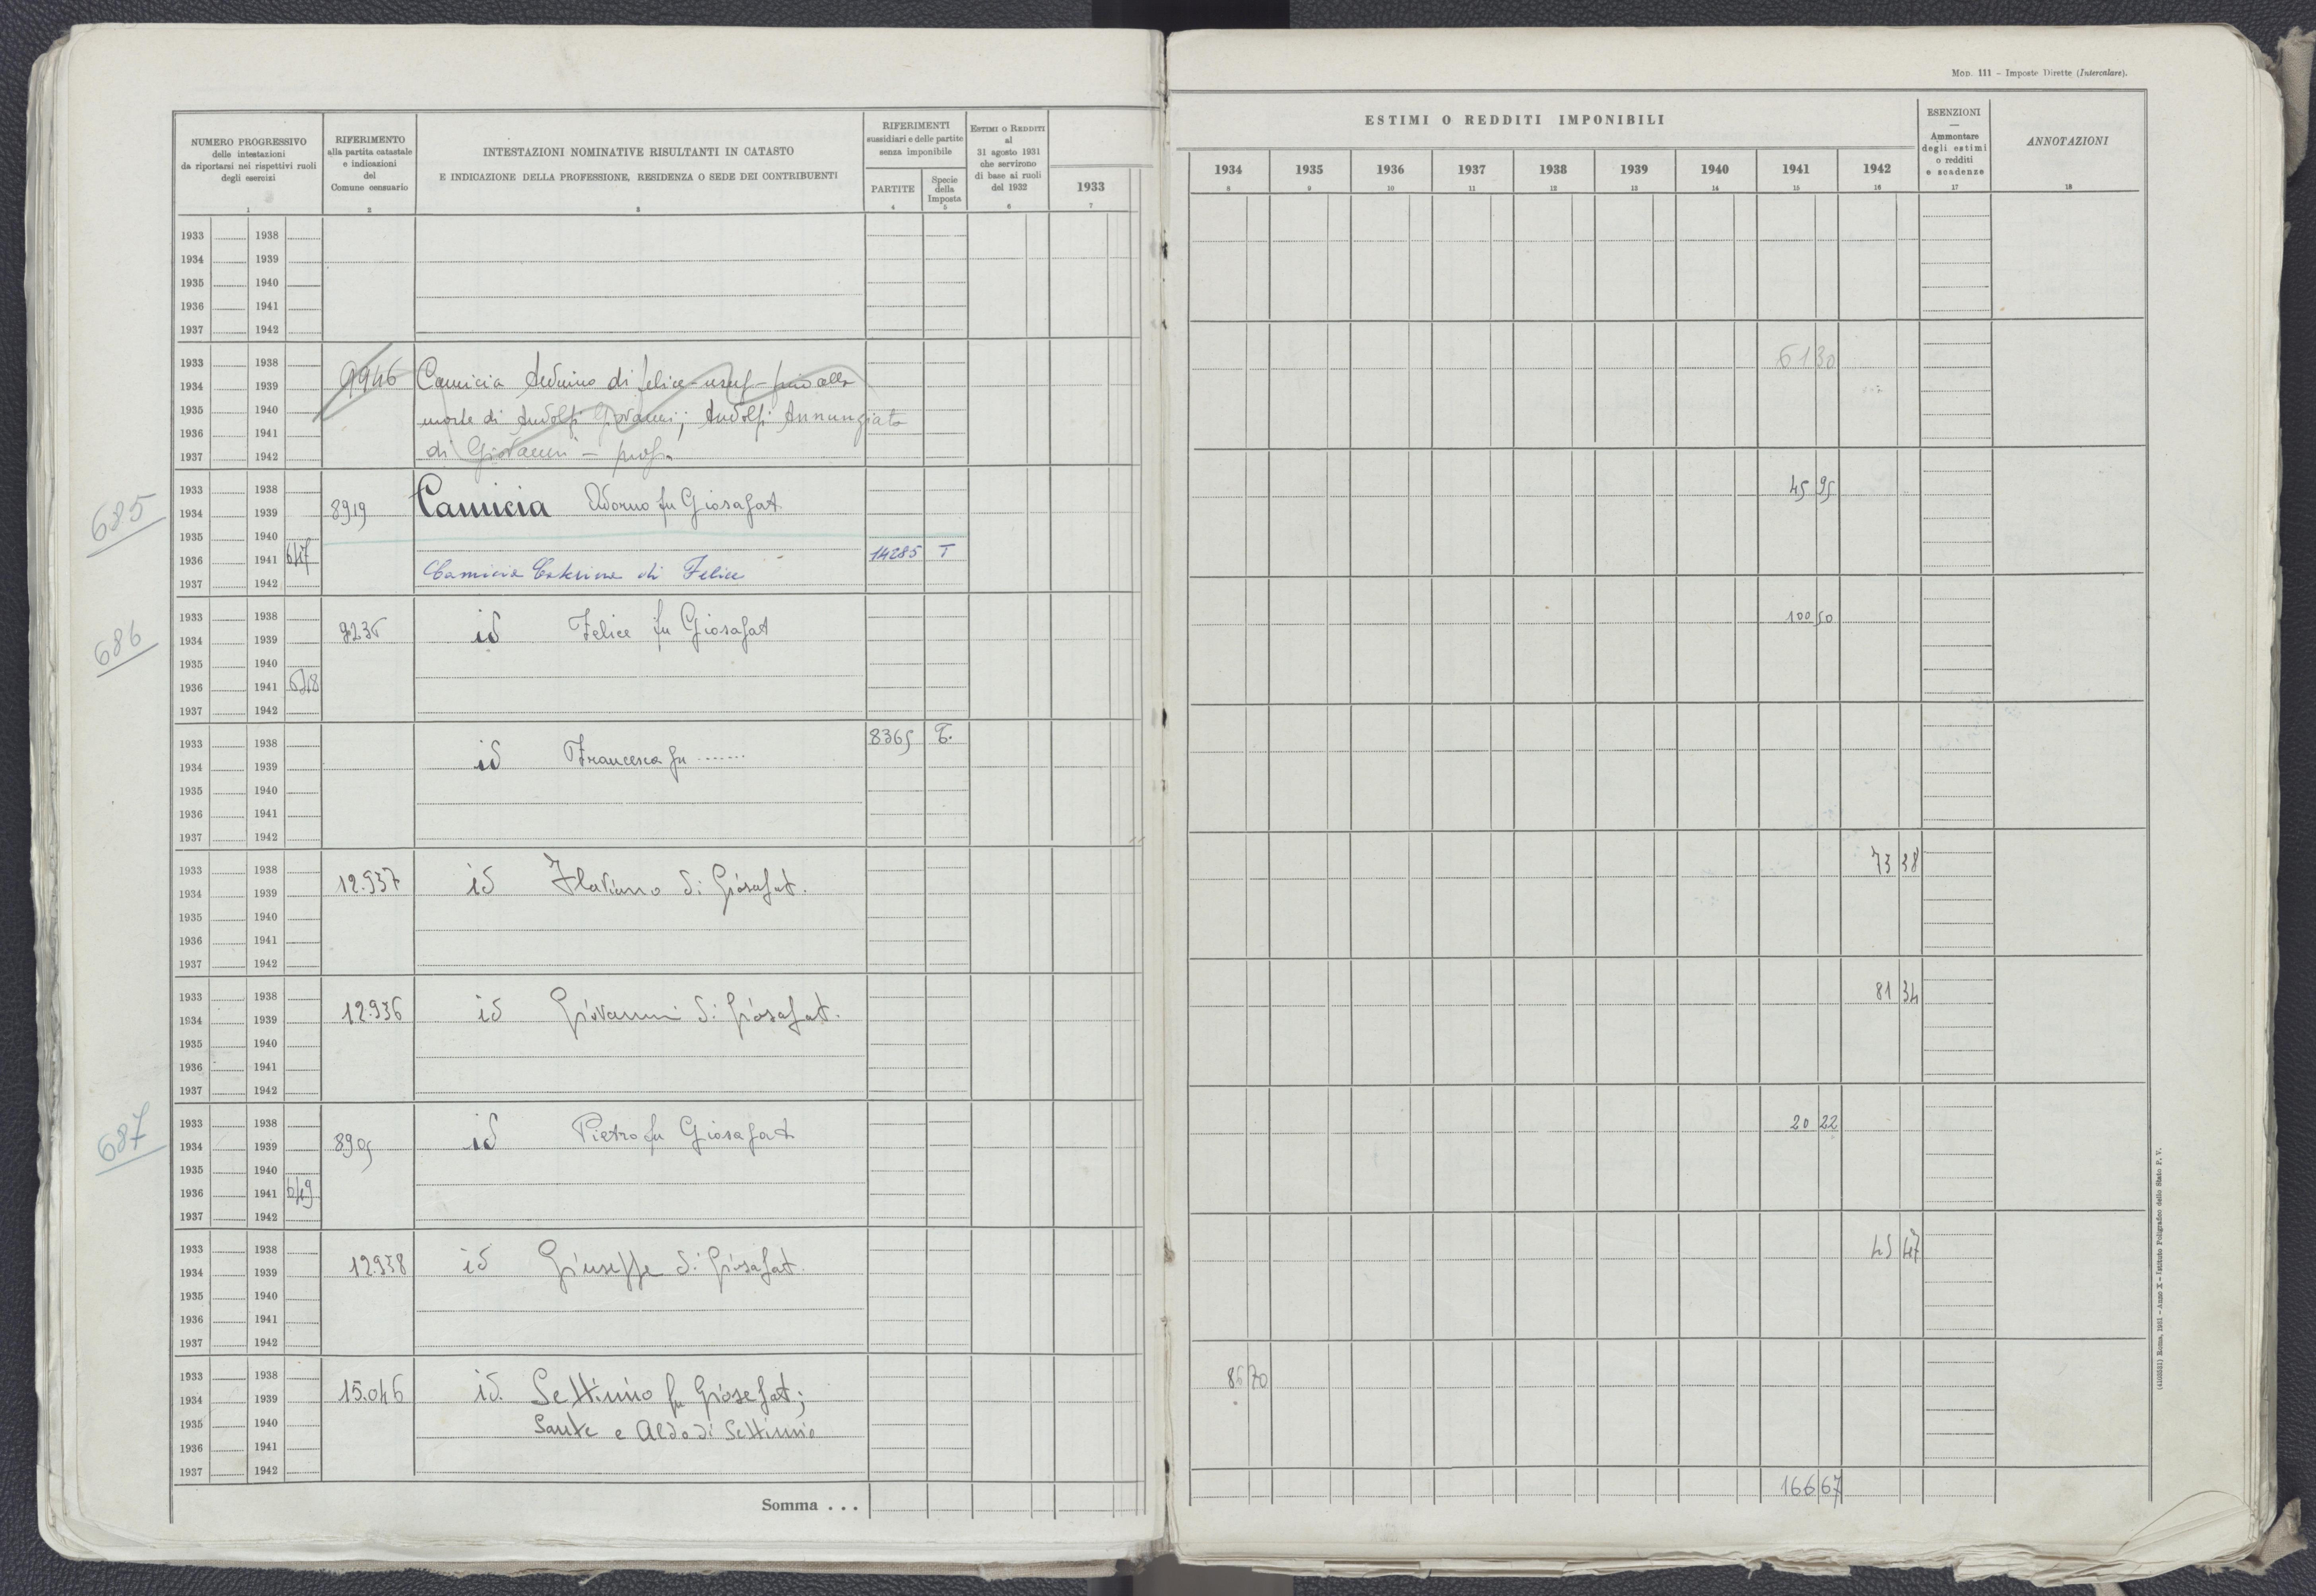 Mod. 111 - Imposte Dirette (Intercalare).
NUMERO PROGRESSIVO
delle intestazioni
da riportarsi nei rispettivi ruoli
degli esercizi
1
RIFERIMENTO
alla partita catastale
e indicazioni
del
Comune censuario
2
INTESTAZIONI NOMINATIVE RISULTANTI IN CATASTO
E INDICAZIONE DELLA PROFESSIONE, RESIDENZA O SEDE DEI CONTRIBUENTI
3
RIFERIMENTI
sussidiari e delle partite
senza imponibile
PARTITE
4
Specie
della
Imposta
5
Estimi o Redditi
al
31 agosto 1931
che servirono
di base ai ruoli
del 1932
6
1933
7
ESTIMI O REDDITI IMPONIBILI
1934 1935 1936 1937 1938 1939 1940 1941 1942
8 9 10 11 12 13 14 15 16
ESENZIONI
—
Ammontare
degli estimi
o redditi
e scadenze
17
ANNOTAZIONI
18
1933 1938
1934 1939
1935 1940
1936 1941
1937 1942
1933 1938
1934 1939 9946 Camicia di Felice - usuf - fino alla 61 30
1935 1940 morte di Andolfi Giovanni; Andolfi Annunziata
1936 1941
1937 1942 di Giovanni - prop.
1933 1938 45 95
685 1934 1939 8919 Camicia Adorno fu Giosafat
1935 1940
1936 1941 14285 T
1937 1942 Camicia Caterina di Felice
1933 1938 100 50
686 1934 1939 9236 id Felice fu Giosafat
1935 1940
1936 1941 648
1937 1942
1933 1938 8365 T.
1934 1939 id Francesca fu .......
1935 1940
1936 1941
1937 1942
1933 1938 73 38
1934 1939 12.937 id Flaviano di Giosafat.
1935 1940
1936 1941
1937 1942
1933 1938 81 34
1934 1939 12.936 id Giovanni di Giosafat.
1935 1940
1936 1941
1937 1942
1933 1938 20 22
687 1934 1939 id Pietro fu Giosafat
1935 1940
1936 1941 649
1937 1942
1933 1938 45 47
1934 1939 12.938 id Giuseppe di Giosafat.
1935 1940
1936 1941
1937 1942
1933 1938 86 70
1934 1939 15.046 id. Settimio fu Giosefat;
1935 1940 Sante e Aldo di Settimio
1936 1941
1937 1942
Somma . . . 166 67
(4102531) Roma, 1931 - Anno X - Istituto Poligrafico dello Stato P. V.